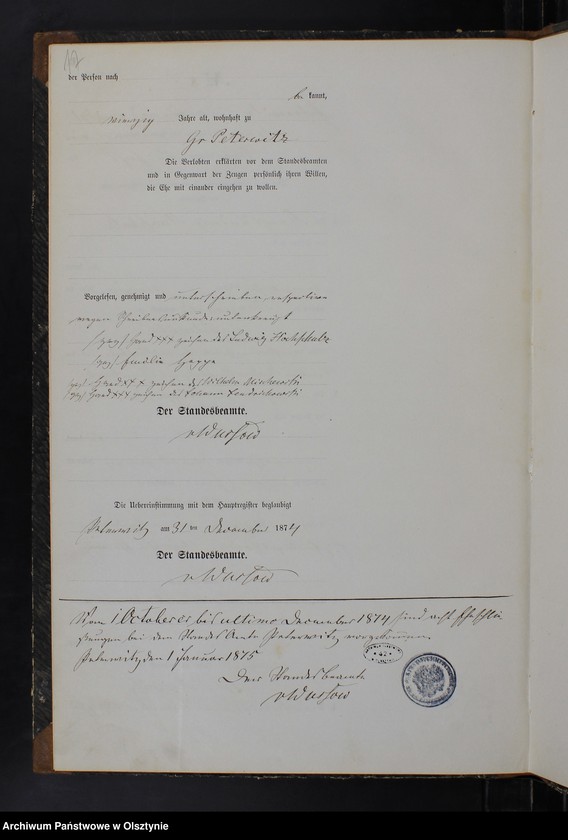 der Person nach
be kannt,
Jahre alt, wohnhaft zu
Gr Peterwitz
Die Verlobten erklärten vor dem Standesbeamten
und in Gegenwart der Zeugen persönlich ihren Willen,
die Ehe mit einander eingehen zu wollen.
Vorgelesen, genehmigt und unterschrieben
wegen
Handxxx zeichen des Ludwig Hochschulz
Emilie Heppe
Handxxx zeichen des Wilhelm Mischewski
Handxxx zeichen des Johann
Der Standesbeamte.
Die Uebereinstimmung mit dem Hauptregister beglaubigt
Peterwitz am 31 ten December 1874
Der Standesbeamte.
Vom 1 October bis ultimo December 1874 sind acht Eheschlie
ßungen bei dem Standes Amte Peterwitz vorgekommen.
Peterwitz den 1 Januar 1875
Der Standesbeamte
Archiwum Państwowe w Olsztynie